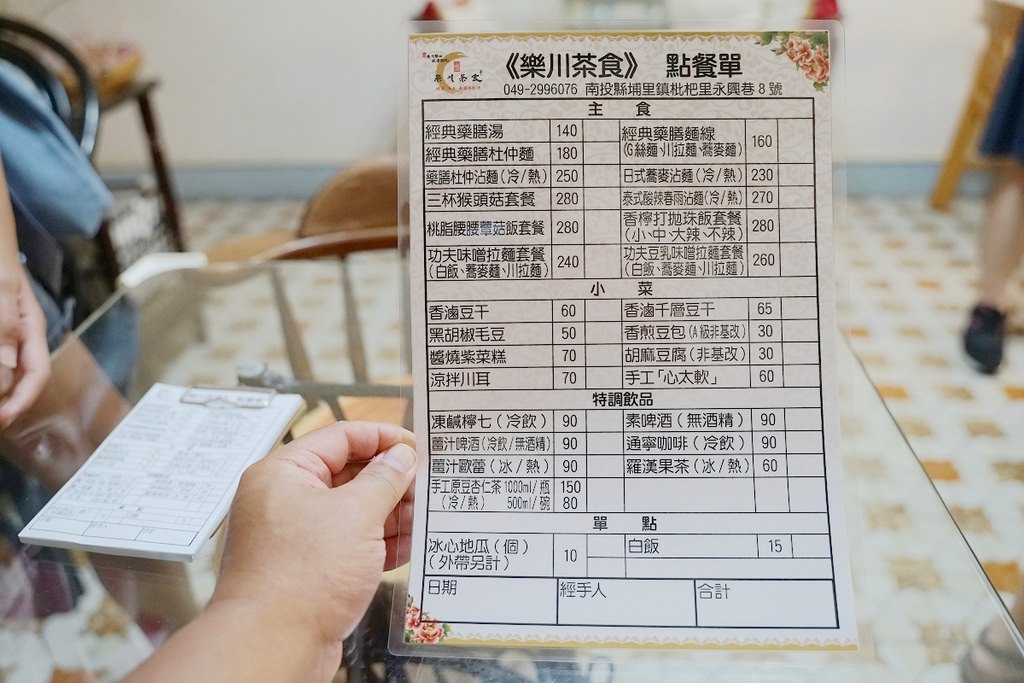 樂川茶食
《樂川茶食》 點餐單
049-2996076 南投縣埔里鎮枇杷里永興巷8號
主 食
經典藥膳湯 140 經典藥膳麵線 160
(G絲麵、川拉麵、蕎麥麵)
經典藥膳杜仲麵 180
藥膳杜仲沾麵(冷/熱) 250 日式蕎麥沾麵(冷/熱) 230
三杯猴頭菇套餐 280 泰式酸辣春雨沾麵(冷/熱) 270
桃脂腰腰蕈菇飯套餐 280 香檸打拋珠飯套餐 280
(小、中、大辣、不辣)
功夫味噌拉麵套餐 240 功夫豆乳味噌拉麵套餐 260
(白飯、蕎麥麵、川拉麵) (白飯、蕎麥麵、川拉麵)
小 菜
香滷豆干 60 香滷千層豆干 65
黑胡椒毛豆 50 香煎豆包(A級非基改) 30
醬燒紫菜糕 70 胡麻豆腐(非基改) 30
涼拌川耳 70 手工「心太軟」 60
特調飲品
凍鹹檸七(冷飲) 90 素啤酒(無酒精) 90
薑汁啤酒(冷飲/無酒精) 90 通寧咖啡(冷飲) 90
薑汁歐蕾(冰/熱) 90 羅漢果茶(冰/熱) 60
手工原豆杏仁茶 1000ml/瓶 150
(冷/熱) 500ml/碗 80
單 點
冰心地瓜(個) 10 白飯 15
(外帶另計)
日期 經手人 合計